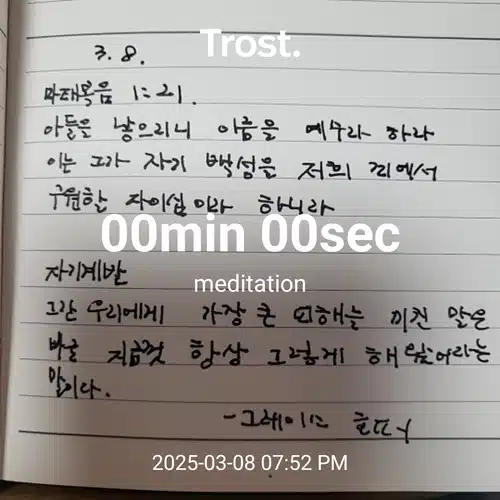 Trost.
3. 8.
마태복음 1:21.
아들을 낳으리니 이름을 예수라 하라
이는 그가 자기 백성을 저희 죄에서
구원할 자이심이라 하니라
00min 00sec
meditation
자기계발
그간 우리에게 가장 큰 피해를 끼친 말은
바로 지금껏 항상 그렇게 해 왔어라는
말이다.
-그레이스 호퍼
2025-03-08 07:52 PM